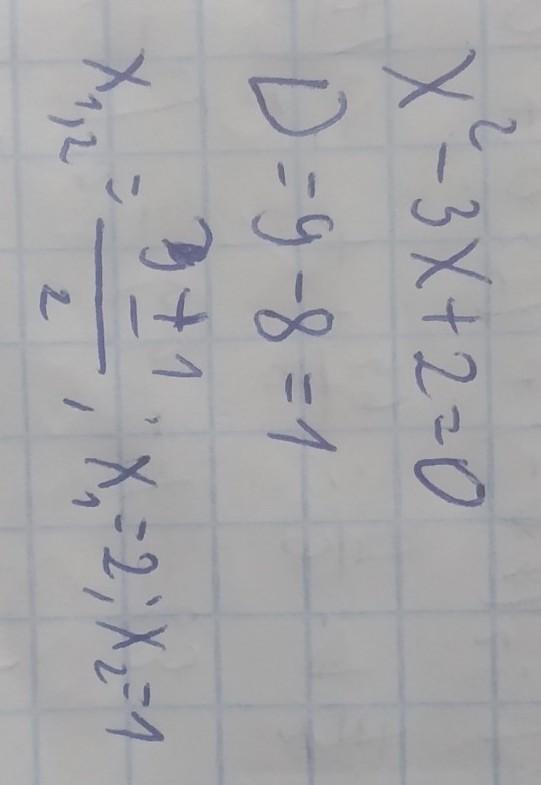 x² - 3x + 2 = 0
D = 9 - 8 = 1
x₁,₂ = (3 ± 1)/2 ; x₁ = 2; x₂ = 1